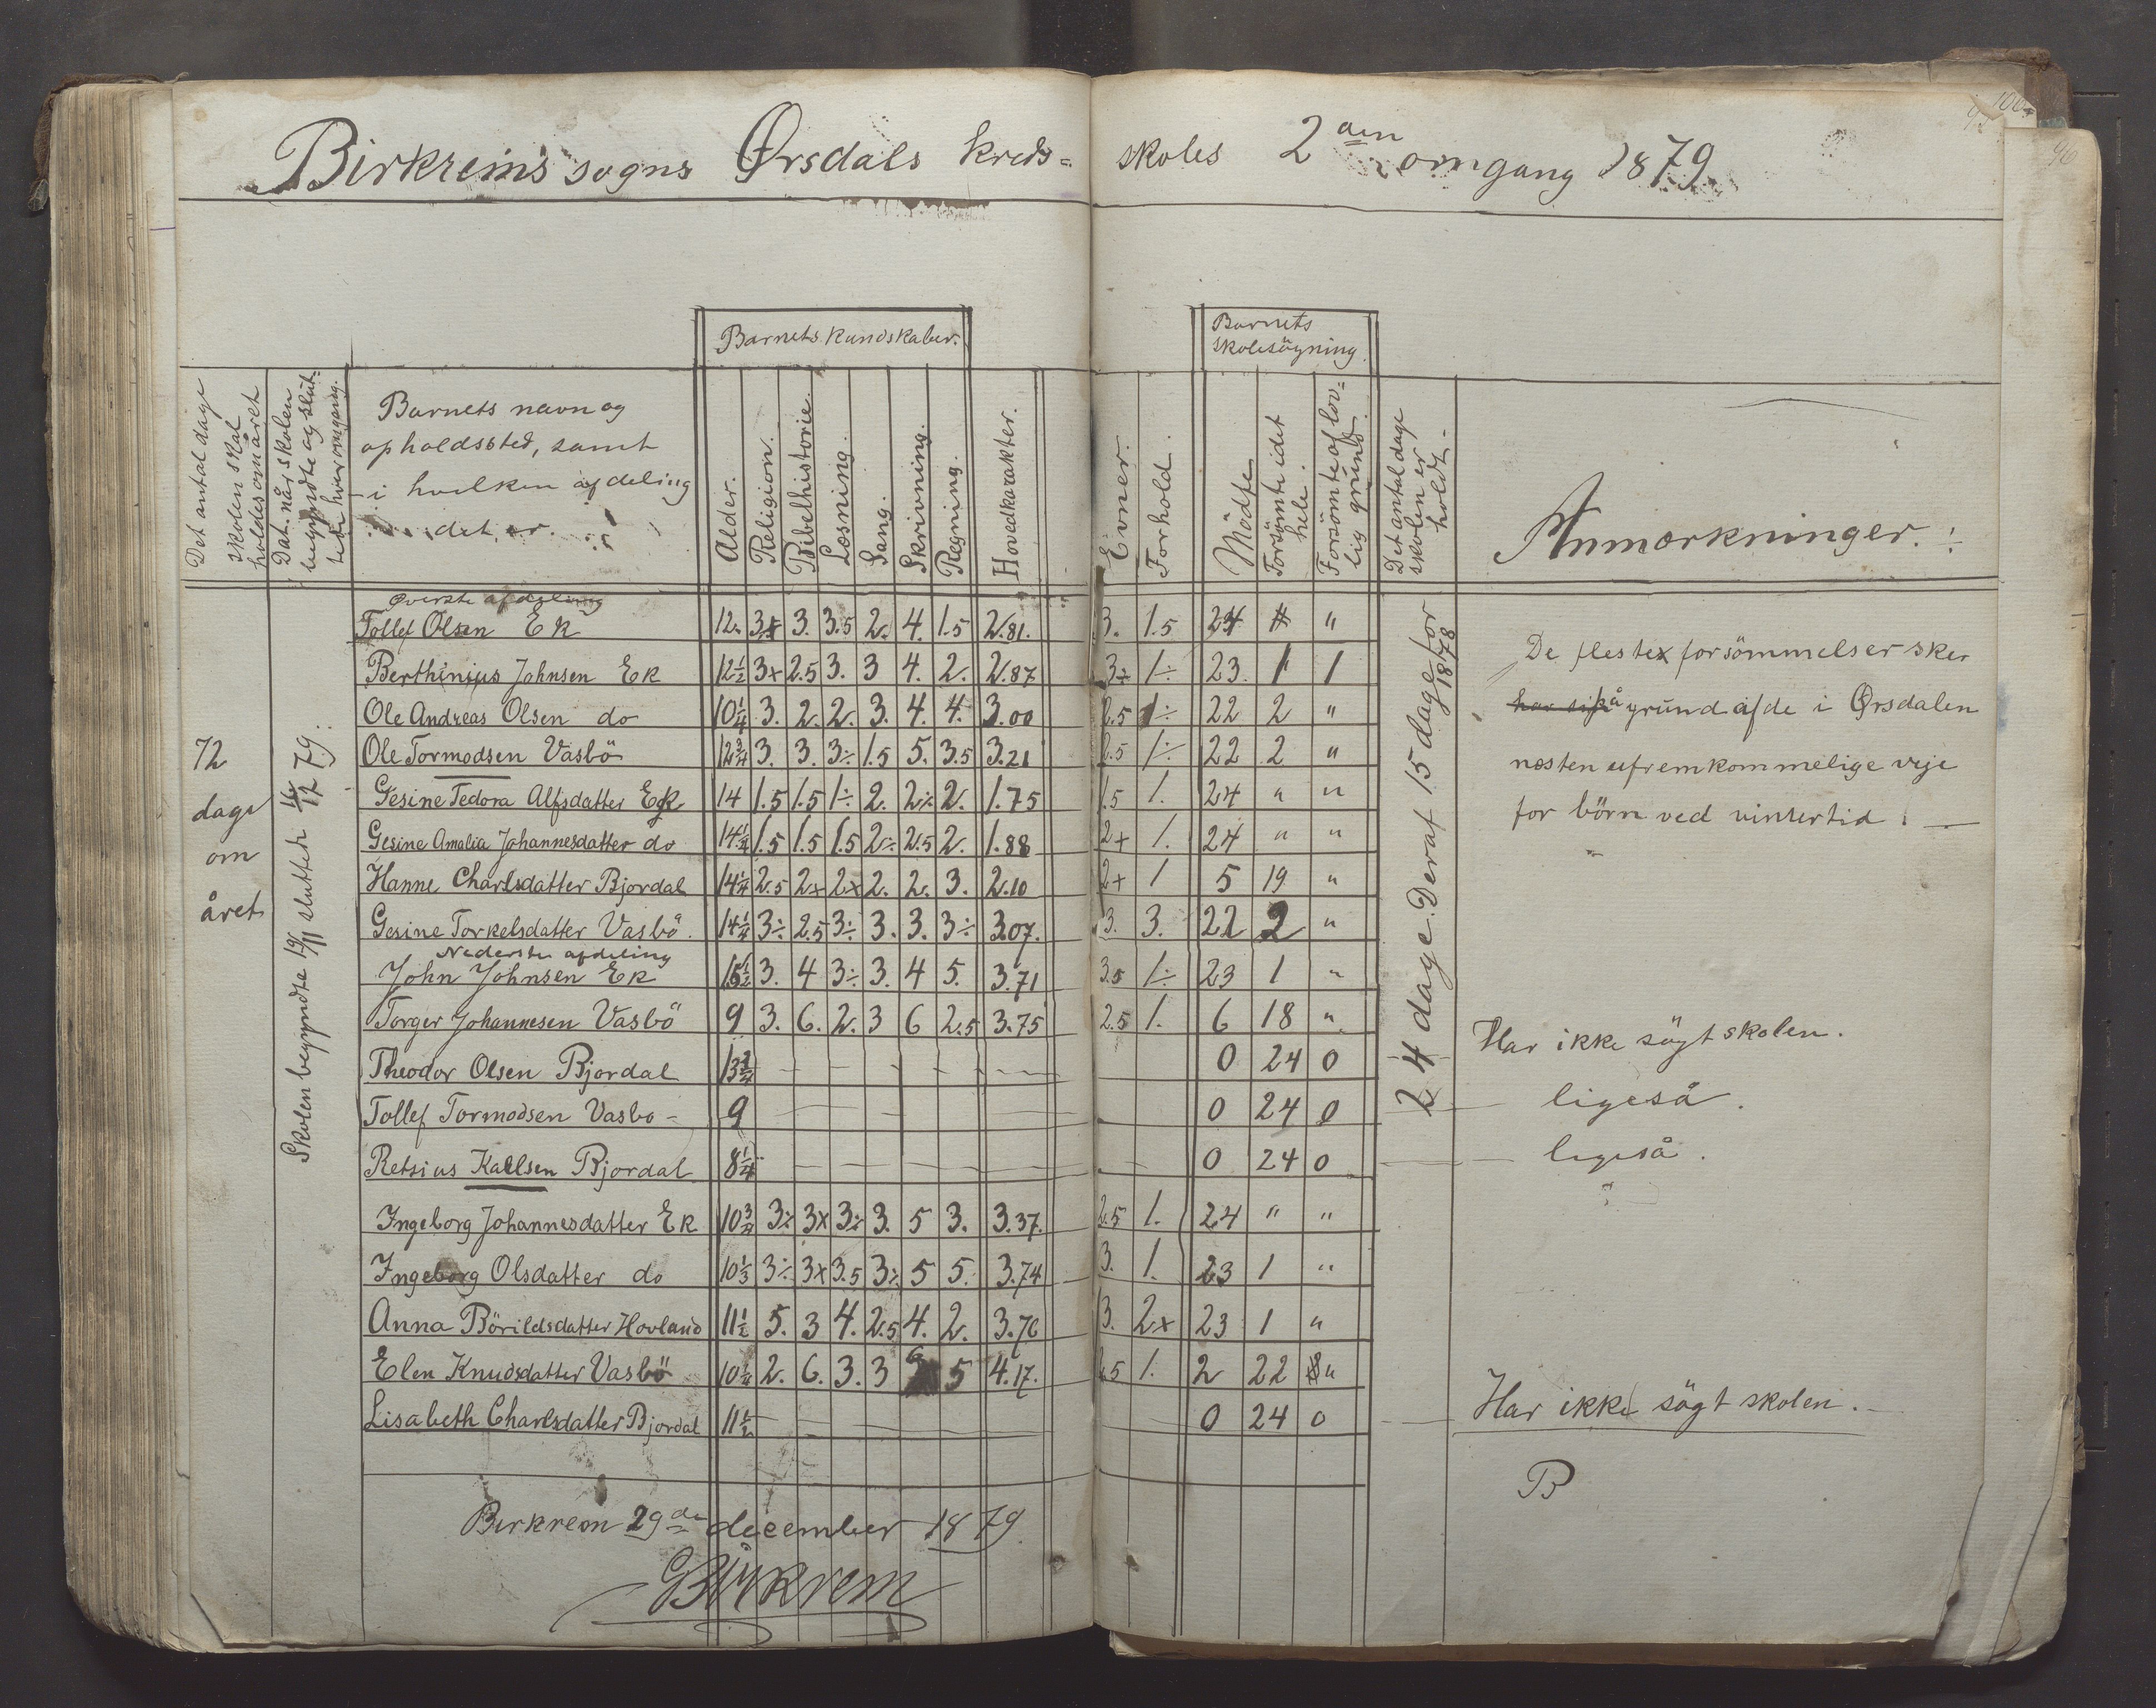 Birkreims sogns Ørsdals kreds= skoles 2den omgang 1879.
Barnets kundskaber.
Barnets skolesögning.
Det antal dage skolen skal holdes om året
Dat. når skolen begyndte og sluttede hver omgang.
Barnets navn og
opholdssted, samt
i hvilken afdeling
det er.
Alder.
Religion.
Bibelhistorie.
Læsning.
Sang.
Skrivning.
Regning.
Hovedkarakter.
Evner.
Forhold.
Mödte
Forsömte i det hele.
Forsömte af lovlig grund.
Det antal dage skolen er holdt.
Anmærkninger.
72
dage
om
året
Skolen begyndte 19/11 sluttede 16/12 79.
24 dage. Deraf 15 dage for 1878
Øverste afdeling
Tollef Olsen Ek 12. 3x 3. 3.5 2. 4. 1.5 2.81. 3. 1.5 24 " "
Berthinius Johnsen Ek 12½ 3x 2.5 3. 3 4. 2. 2.87 3÷ 1÷ 23. 1 1
Ole Andreas Olsen do 10¼ 3. 2. 2. 3. 4. 4. 3.00 2.5 1÷ 22 2 "
Ole Tormodsen Vasbö 12¾ 3. 3. 3÷ 1.5 5. 3.5 3.21 2.5 1÷ 22 2 "
Gesine Tedora Alfsdatter Ek 14 1.5 1.5 1÷ 2. 2÷ 2. 1.75 1.5 1. 24 " "
Gesine Amalia Johannesdatter do 14¼ 1.5 1.5 1.5 2÷ 2.5 2. 1.88 2+ 1. 24 " "
Hanne Charlsdatter Bjordal 14¼ 2.5 2x 2x 2. 2. 3. 2.10 2+ 1 5 19 "
Gesine Torkelsdatter Vasbö. 14¼ 3÷ 2.5 3÷ 3. 3. 3÷ 3.07. 3. 3. 22 2 "
Nederste afdeling
John Johnsen Ek 3. 4 3÷ 3. 4 5. 3.71 3.5 1÷ 23 1 "
Torger Johannesen Vasbö 9 3. 6. 2. 3 6 2.5 3.75 2.5 1. 6 18 "
Theodor Olsen Bjordal 13¾ 0 24 0 Har ikke sögt skolen.
Tollef Tormodsen Vasbo 9 0 24 0 ligeså.
Retsius Kallsen Bjordal 8¼ 0 24 0 ligeså.
Ingeborg Johannesdatter Ek 10¾ 3÷ 3x 3÷ 3. 5 3. 3.37. 2.5 1. 24 " "
Ingeborg Olsdatter do 10⅓ 3÷ 3x 3.5 3÷ 5 5. 3.74 3. 1. 23 1 "
Anna Börildsdatter Hovland 11½ 5. 3 4. 2.5 4. 2. 3.76 3. 2x 23 1 "
Elen Knudsdatter Vasbö 10¼ 2. 6. 3. 3 5 4.17. 2.5 1. 2 22 "
Lisabeth Charlsdatter Bjordal 11½ 0 24 0 Har ikke sögt skolen.
De fleste forsömmelser sker
på grund af de i Ørsdalen
næsten ufremkommelige veje
for börn ved vintertid.
B
Birkrem 29de december 1879.
GBirkrem
96